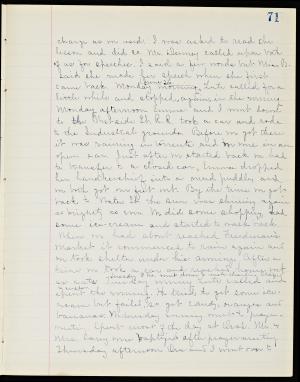 71
charge as usual. I was asked to read the
lesson and did so. Mr. called upon both
of us for speeches. I said a few words but Mrs. B.
said she made her speech when she first
came back. Monday morning Lute called for a
little while and stopped again in the evening.
Monday afternoon Emma and I went down
to the Westside St. R.R. took a car and rode
to the Industrial grounds. Before we got there
it was raining in torrents and we were in an
open car. Just after we started back we had
to transfer to a closed car, Emma dropped
her handkerchief into a mud puddle and
we both got our feet wet. By the time we got
back to Water St. the sun was shining again
as bright as ever. We did some shopping, had
some ice-cream and started to walk back.
When we had about reached
Market it commenced to rain again and
we took shelter under his awning. After a
time we took a car and reached home but
so wet. Tuesday evening Lute called and
spent the evening. He tried to get some ice
cream but failed so got candy, oranges and
bananas. Wednesday evening we went to prayer
meeting. Spent most of the day at Mr. &
Mrs. were baptized after prayer meeting
Thursday afternoon Emma and I went over to